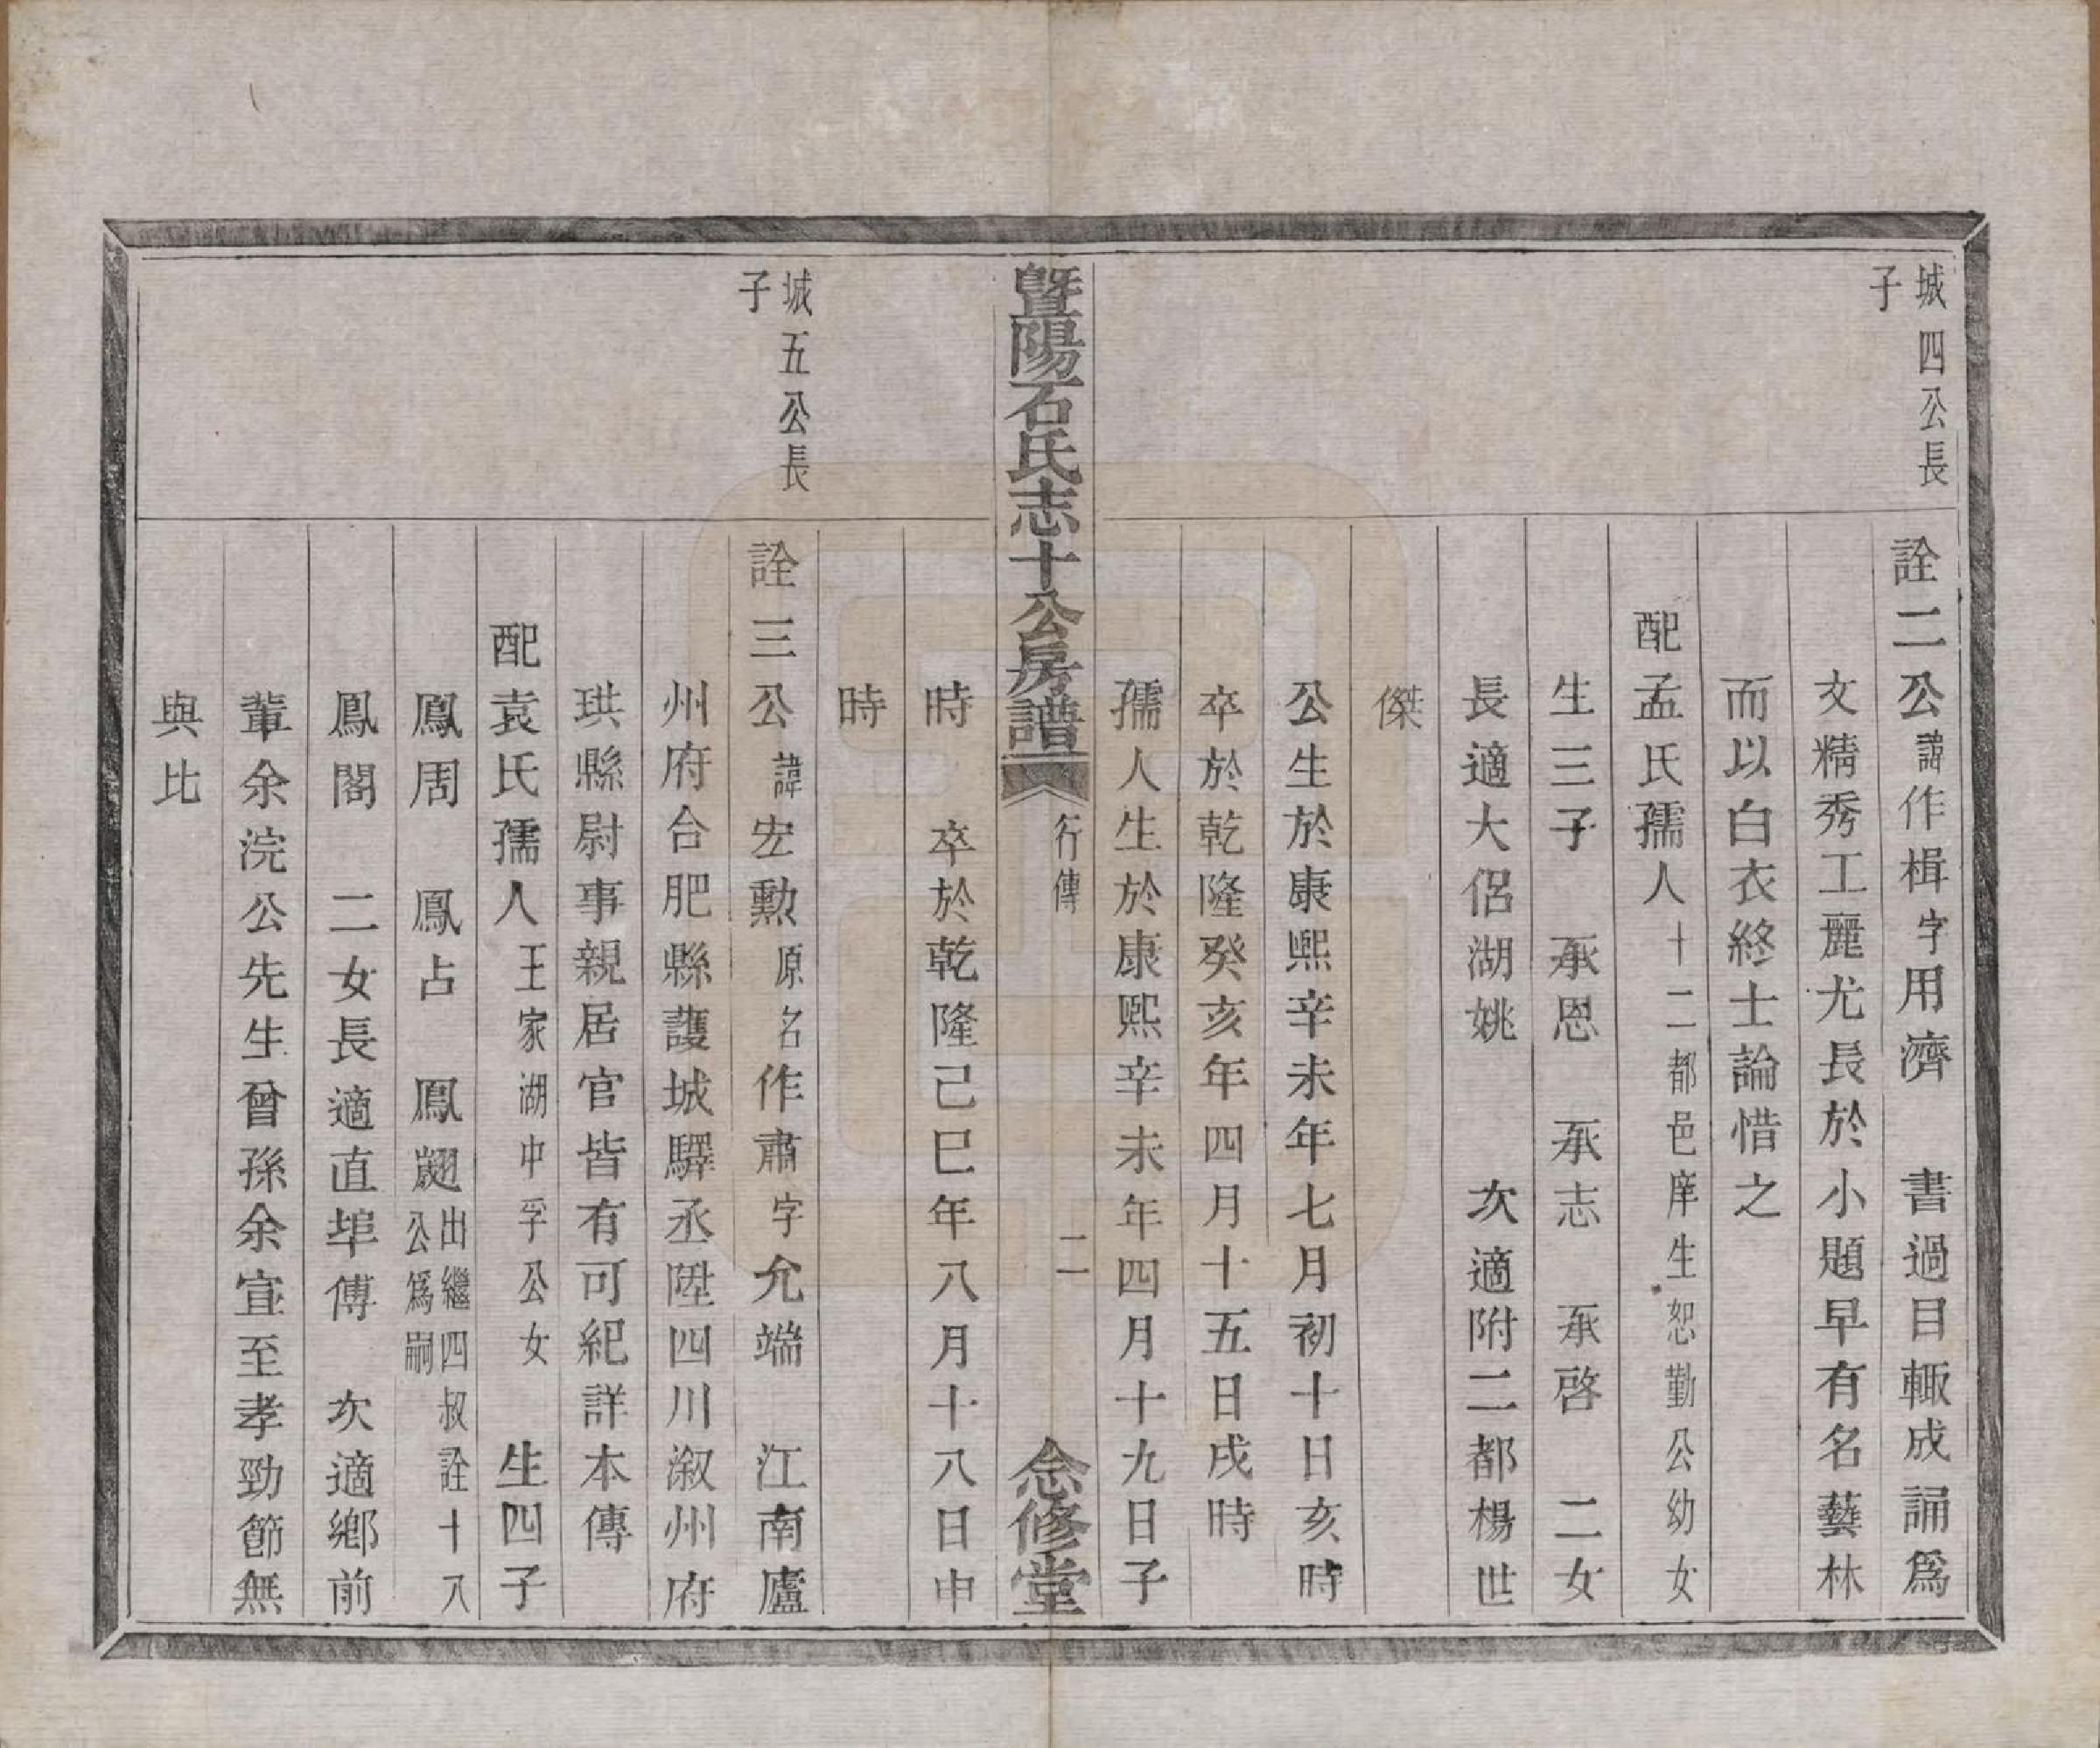 城四公長
子
詮二公諱作楫字用濟　書過目輙成誦爲
文精秀工麗尤長於小題早有名藝林
而以白衣終士論惜之
配孟氏孺人十二都邑庠生恕勤公幼女
生三子　承恩　承志　承啓　二女
長適大侶湖姚　次適附二都楊世
傑
公生於康熙辛未年七月初十日亥時
卒於乾隆癸亥年四月十五日戌時
孺人生於康熙辛未年四月十九日子
暨陽石氏志十公房譜　行傳　二　念修堂
時　卒於乾隆己巳年八月十八日申
時
城五公長
子
詮三公諱宏勳原名作肅字允端　江南廬
州府合肥縣護城驛丞陞四川溆州府
珙縣尉事親居官皆有可紀詳本傳
配袁氏孺人王家湖中孚公女　生四子
鳳周　鳳占　鳳翽出繼四叔詮十八
公爲嗣
鳳閣　二女長適直埠傅　次適鄉前
輩余浣公先生曾孫余宜至孝勁節無
與比